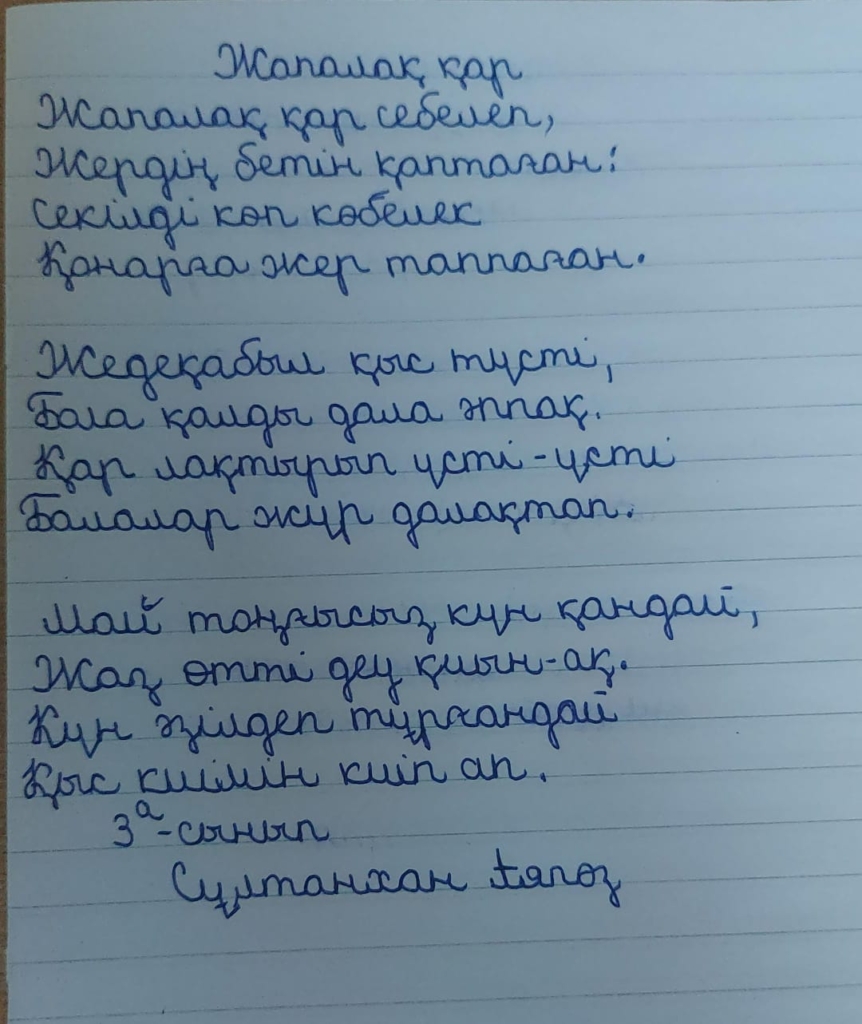 Жапалақ қар
Жапалақ қар себелеп,
Жердің бетін қаптаған:
Секілді көп көбелек
Қонарға жер таппаған.
Жедеқабыл қыс түсті,
Бола қалды дала әппақ.
Қар лақтырып үсті-үсті
Балалар жүр далақтап.
Май тоңғысыз күн қандай,
Жаз өтті деу қиын-ақ.
Күн әзілдеп тұрғандай
Қыс киімін киіп ап.
3ᵃ-сынып
Сұлтанхан